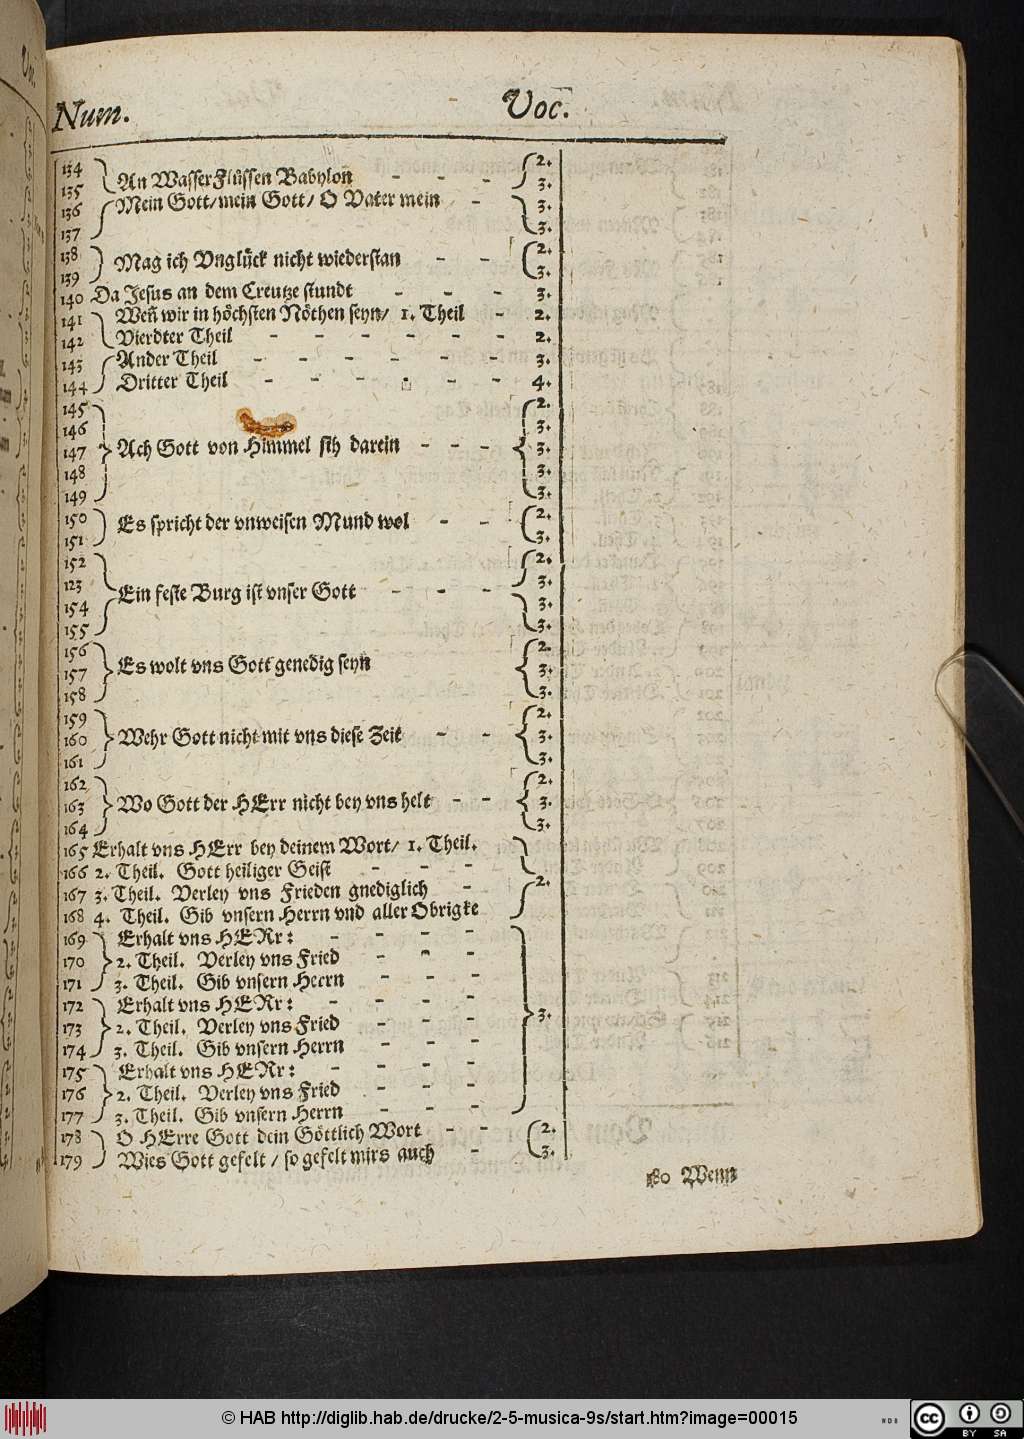 Num. Voc.
134 2.
An Wasser Flüssen Babylon - - -
135 3.
136 Mein Gott/ mein Gott/ O Vater mein - 3.
137 3.
138 2.
Mag ich Vnglück nicht wiederstan - -
139 3.
140 Da Jesus an dem Creutze stundt - - - 3.
141 Weñ wir in höchsten Nöthen seyn/ 1. Theil - 2.
142 Vierdter Theil - - - - - - 2.
143 Ander Theil - - - - - - 3.
144 Dritter Theil - - - - - - 4.
145 2.
146 3.
147 Ach Gott von Himmel sih darein - - - 3.
148 3.
149 3.
150 Es spricht der vnweisen Mund wol - - 2.
151 3.
152 2.
123 3.
Ein feste Burg ist vnser Gott - - -
154 3.
155 3.
156 2.
157 Es wolt vns Gott genedig seyn 3.
158 3.
159 2.
160 Wehr Gott nicht mit vns diese Zeit - - 3.
161 3.
162 2.
163 Wo Gott der HErr nicht bey vns helt - - 3.
164 3.
165 Erhalt vns HErr bey deinem Wort/ 1. Theil.
166 2. Theil. Gott heiliger Geist - - -
167 3. Theil. Verley vns Frieden gnediglich - 2.
168 4. Theil. Gib vnsern Herrn vnd aller Obrigke
169 Erhalt vns HERr: - - - -
170 2. Theil. Verley vns Fried - - -
171 3. Theil. Gib vnsern Herrn - - -
172 Erhalt vns HERr: - - - -
173 2. Theil. Verley vns Fried - - - 3.
174 3. Theil. Gib vnsern Herrn - - -
175 Erhalt vns HERr: - - - -
176 2. Theil. Verley vns Fried - - -
177 3. Theil. Gib vnsern Herrn - - -
178 O HErre Gott dein Göttlich Wort - - 2.
179 Wies Gott gefelt / so gefelt mirs auch - 3.
80 Wenn
© HAB http://diglib.hab.de/drucke/2-5-musica-9s/start.htm?image=00015
cc BY SA